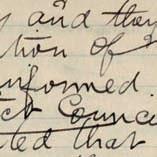 and the
tion of
informed.
ct Counci
ted that